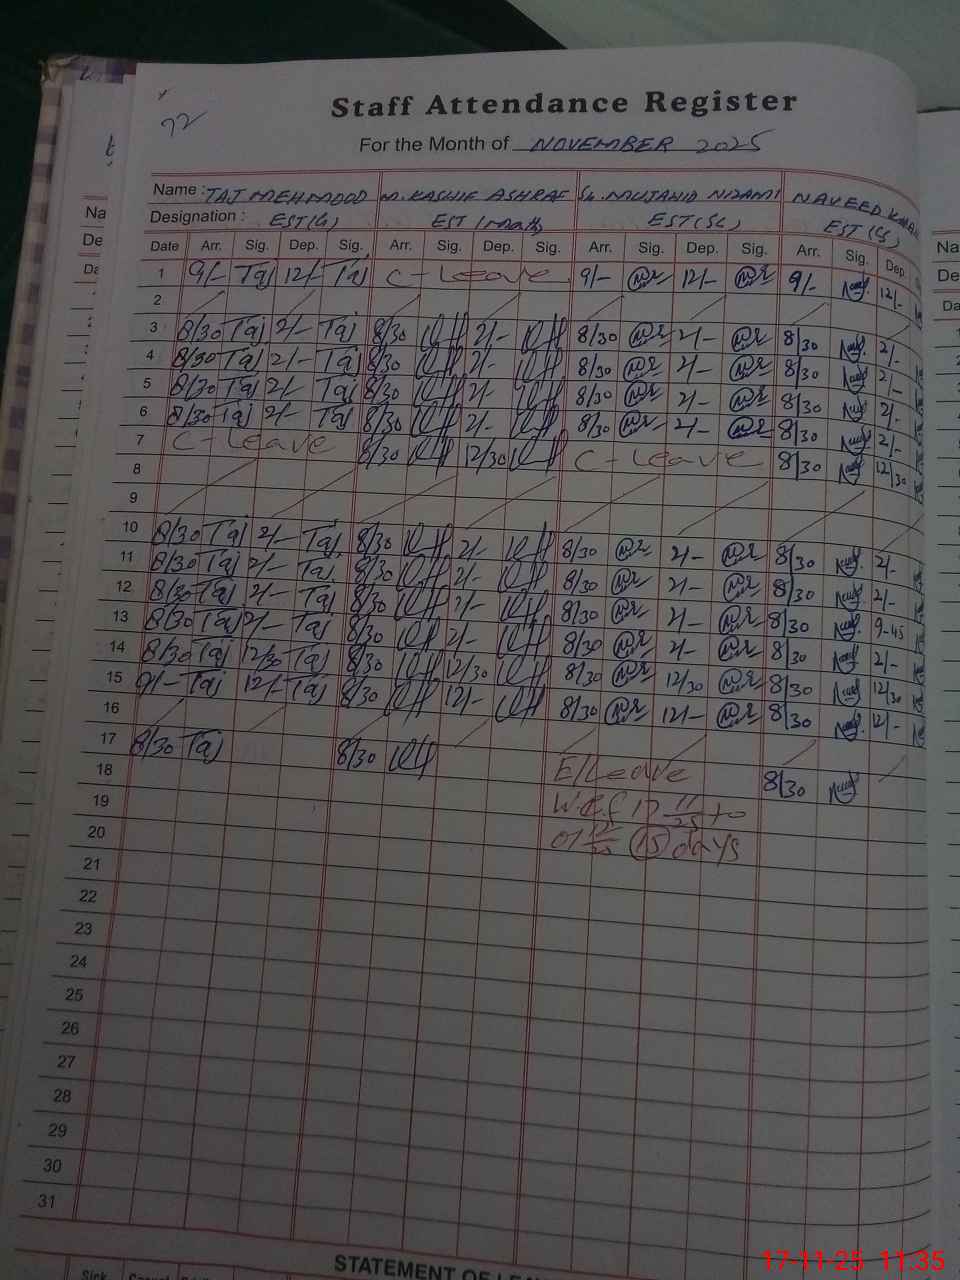 72
Staff Attendance Register
For the Month of NOVEMBER 2025
Name : TAJ MEHMOOD M. KASHIF ASHRAF Sh. MUJAHID NIZAMI NAVEED
Designation : EST(G) EST/Math EST(SC) EST(CS)
Date Arr. Sig. Dep. Sig. Arr. Sig. Dep. Sig. Arr. Sig. Dep. Sig. Arr. Sig. Dep.
1 9/- Taj 12/- Taj C-Leave 9/- 12/- 9/- 12/-
2
3 8/30 Taj 2/- Taj 8/30 2/- 8/30 2/- 8/30 2/-
4 8/30 Taj 2/- Taj 8/30 2/- 8/30 2/- 8/30 2/-
5 8/30 Taj 2/- Taj 8/30 2/- 8/30 2/- 8/30 2/-
6 8/30 Taj 2/- Taj 8/30 2/- 8/30 2/- 8/30 2/-
7 C-Leave 8/30 12/30 C-Leave 8/30 12/30
8
9
10 8/30 Taj 2/- Taj 8/30 2/- 8/30 2/- 8/30 2/-
11 8/30 Taj 2/- Taj 8/30 2/- 8/30 2/- 8/30 2/-
12 8/30 Taj 2/- Taj 8/30 2/- 8/30 2/- 8/30 9-45
13 8/30 Taj 2/- Taj 8/30 2/- 8/30 2/- 8/30 2/-
14 8/30 Taj 12/30 Taj 8/30 12/30 8/30 12/30 8/30 12/30
15 9/- Taj 12/- Taj 8/30 12/- 8/30 12/- 8/30 12/-
16
17 8/30 Taj 8/30 E/Leave 8/30
18 W.e.f 17 11/25 to
19 01 12/25 (15) days
20
21
22
23
24
25
26
27
28
29
30
31
STATEMENT OF
Sick
17-11-25 11:35